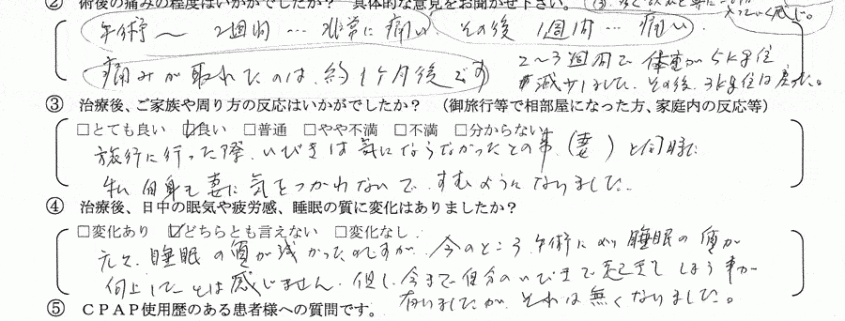 ② 術後の痛みの程度はいかがでしたか？ 具体的な意見をお聞かせ下さい。
手術～ 2週間…非常に痛い、その後1週間…痛い、
痛みが取れたのは、約1ヶ月後です
2～3週間で体重が5kg位
減少しました。その後、3kg位は戻った。
③ 治療後、ご家族や周り方の反応はいかがでしたか？ （御旅行等で相部屋になった方、家庭内の反応等）
□とても良い ☑良い □普通 □やや不満 □不満 □分からない
旅行に行った際、いびきは気にならなかったとの事（妻）と同時に
私自身も妻に気をつかわないで、すむようになりました。
④ 治療後、日中の眠気や疲労感、睡眠の質に変化はありましたか？
□変化あり ☑どちらとも言えない □変化なし
元々、睡眠の質が浅かったのですが、今のところ手術により睡眠の質が
向上したとは感じません、但し、今まで自分のいびきで起きてしまう事が
有りましたが、それは無くなりました。
⑤ ＣＰＡＰ使用歴のある患者様への質問です。